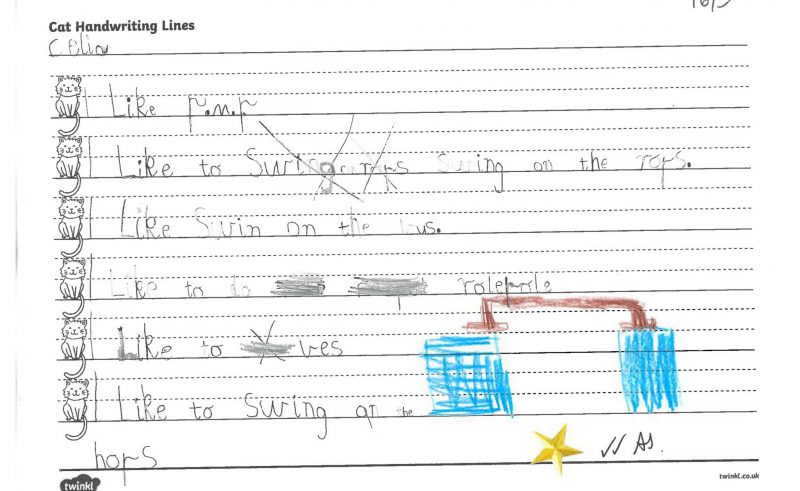 16/5
Cat Handwriting Lines
Celin
I Like p.n.p
I Like to Swing Swing on the rops.
I Like Swin on the
I Like to do rolepole
I Like to ves
I Like to Swing on the
hops
AS.
twinkl
twinkl.co.uk